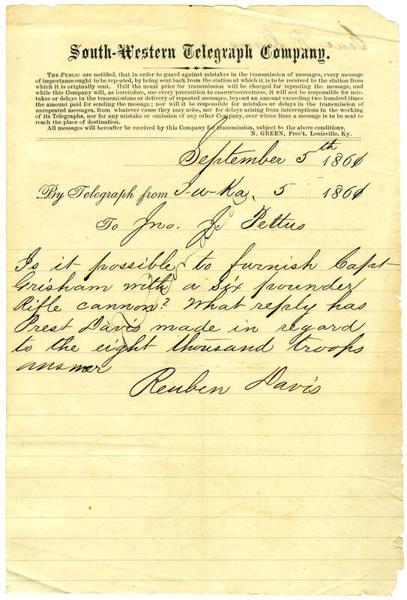 South-Western Telegraph Company.
THE PUBLIC are notified, that in order to guard against mistakes in the transmission of messages, every message
of importance ought to be repeated, by being sent back from the station at which it is to be received to the station from
which it is originally sent. Half the usual price for transmission will be charged for repeating the message, and
while this Company will, as heretofore, use every precaution to ensure correctness, it will not be responsible for mis-
takes or delays in the transmission or delivery of repeated messages, beyond an amount exceeding two hundred times
the amount paid for sending the message; nor will it be responsible for mistakes or delays in the transmission of
unrepeated messages, from whatever cause they may arise, nor for delays arising from interruptions in the working
of its Telegraphs, nor for any mistake or omission of any other Company, over whose lines a message is to be sent to
reach the place of destination.
All messages will hereafter be received by this Company for transmission, subject to the above conditions.
N. GREEN, Pres't, Louisville, Ky.
September 5th 1861
By Telegraph from I-u-Ka, 5 1861
To Jno. J. Pettus
Is it possible to furnish Capt
Grisham with a six pounder
Rifle cannon? What reply has
Prest Davis made in regard
to the eight thousand troops
answer
Reuben Davis